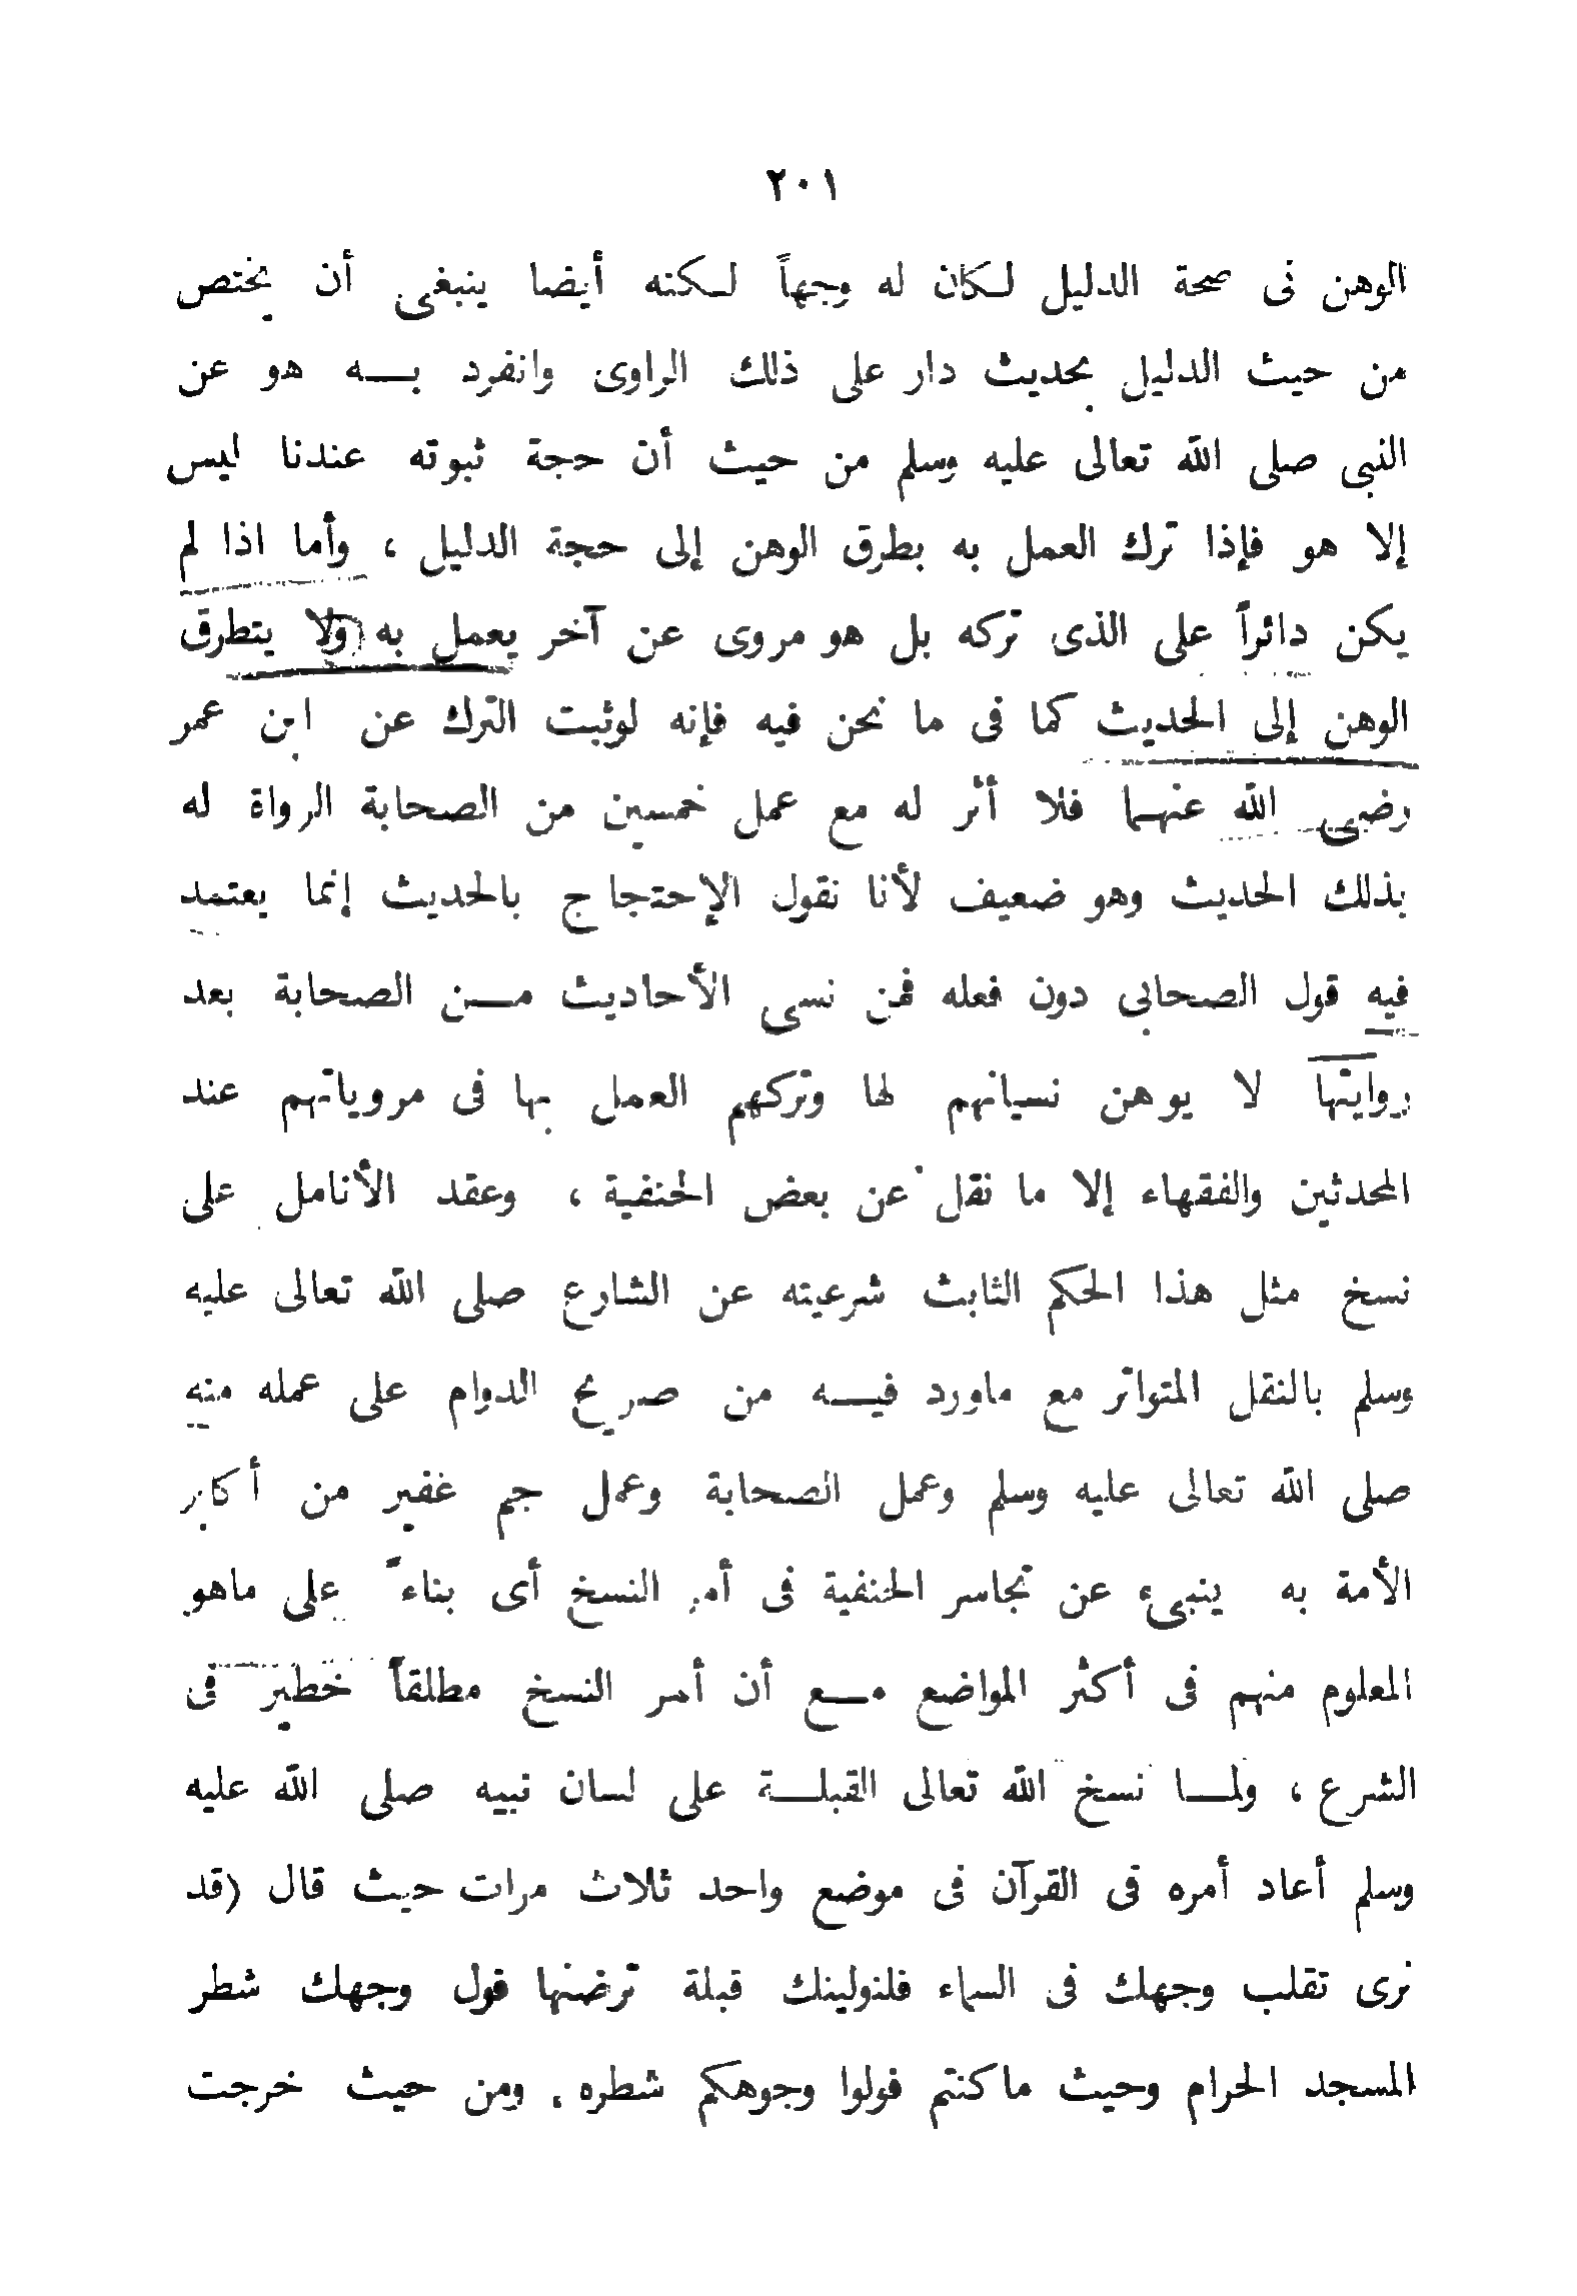 ٢٠١
الوهن فى صحة الدليل لكان له وجهاً لكنه أيضا ينبغى أن يختص
من حيث الدليل بحديث دار على ذلك الراوى وانفرد به هو عن
النبى صلى الله تعالى عليه وسلم من حيث أن حجة ثبوته عندنا ليس
إلا هو فإذا ترك العمل به بطرق الوهن إلى حجة الدليل ، وأما اذا لم
يكن دائراً على الذى تركه بل هو مروى عن آخر يعمل به (ولا يتطرق
الوهن إلى الحديث كما فى ما نحن فيه فإنه لوثبت الترك عن ابن عمر
رضى الله عنهما فلا أثر له مع عمل خمسين من الصحابة الرواة له
بذلك الحديث وهو ضعيف لأنا نقول الإحتجاج بالحديث إنما يعتمد
فيه قول الصحابى دون فعله فمن نسى الأحاديث من الصحابة بعد
روايتها لا يوهن نسيانهم لها وتركهم العمل بها فى مروياتهم عند
المحدثين والفقهاء إلا ما نقل عن بعض الحنفية ، وعقد الأنامل على
نسخ مثل هذا الحكم الثابث شرعيته عن الشارع صلى الله تعالى عليه
وسلم بالنقل المتواتر مع ماورد فيه من صريح الدوام على عمله منه
صلى الله تعالى عليه وسلم وعمل الصحابة وعمل جم غفير من أكابر
الأمة به ينبىء عن تجاسر الحنفية فى أمر النسخ أى بناءً على ماهو
المعلوم منهم فى أكثر المواضع مع أن أمر النسخ مطلقاً خطير فى
الشرع ، ولما نسخ الله تعالى القبلة على لسان نبيه صلى الله عليه
وسلم أعاد أمره فى القرآن فى موضع واحد ثلاث مرات حيث قال (قد
نرى تقلب وجهك فى السماء فلنولينك قبلة ترضٰها فول وجهك شطر
المسجد الحرام وحيث ماكنتم فولوا وجوهكم شطره . ومن حيث خرجت